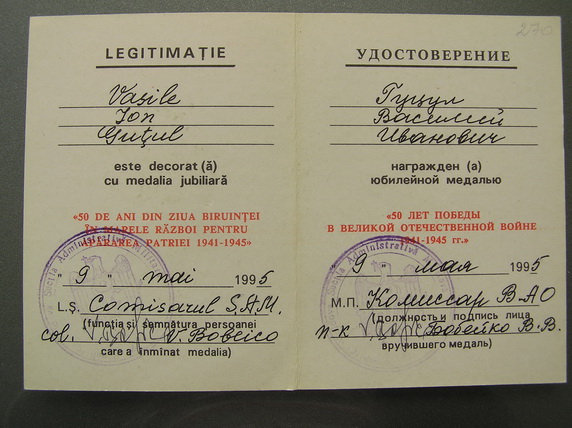 LEGITIMAŢIE
Vasile
Ion
Guţul
este decorat (ă)
cu medalia jubiliară
«50 DE ANI DIN ZIUA BIRUINŢEI
ÎN MARELE RĂZBOI PENTRU
APĂRAREA PATRIEI 1941-1945»
" 9 " mai 1995
L.Ş. Comisarul S.A.M.
(funcţia şi semnătura persoanei
col. V. Bobeico
care a înmînat medalia)
270
УДОСТОВЕРЕНИЕ
Гуцул
Василий
Иванович
награжден (а)
юбилейной медалью
«50 ЛЕТ ПОБЕДЫ
В ВЕЛИКОЙ ОТЕЧЕСТВЕННОЙ ВОЙНЕ
1941-1945 гг.»
" 9 " мая 1995
М.П. Комиссар ВАО
(должность и подпись лица
п-к Бобейко В.В.
вручившего медаль)